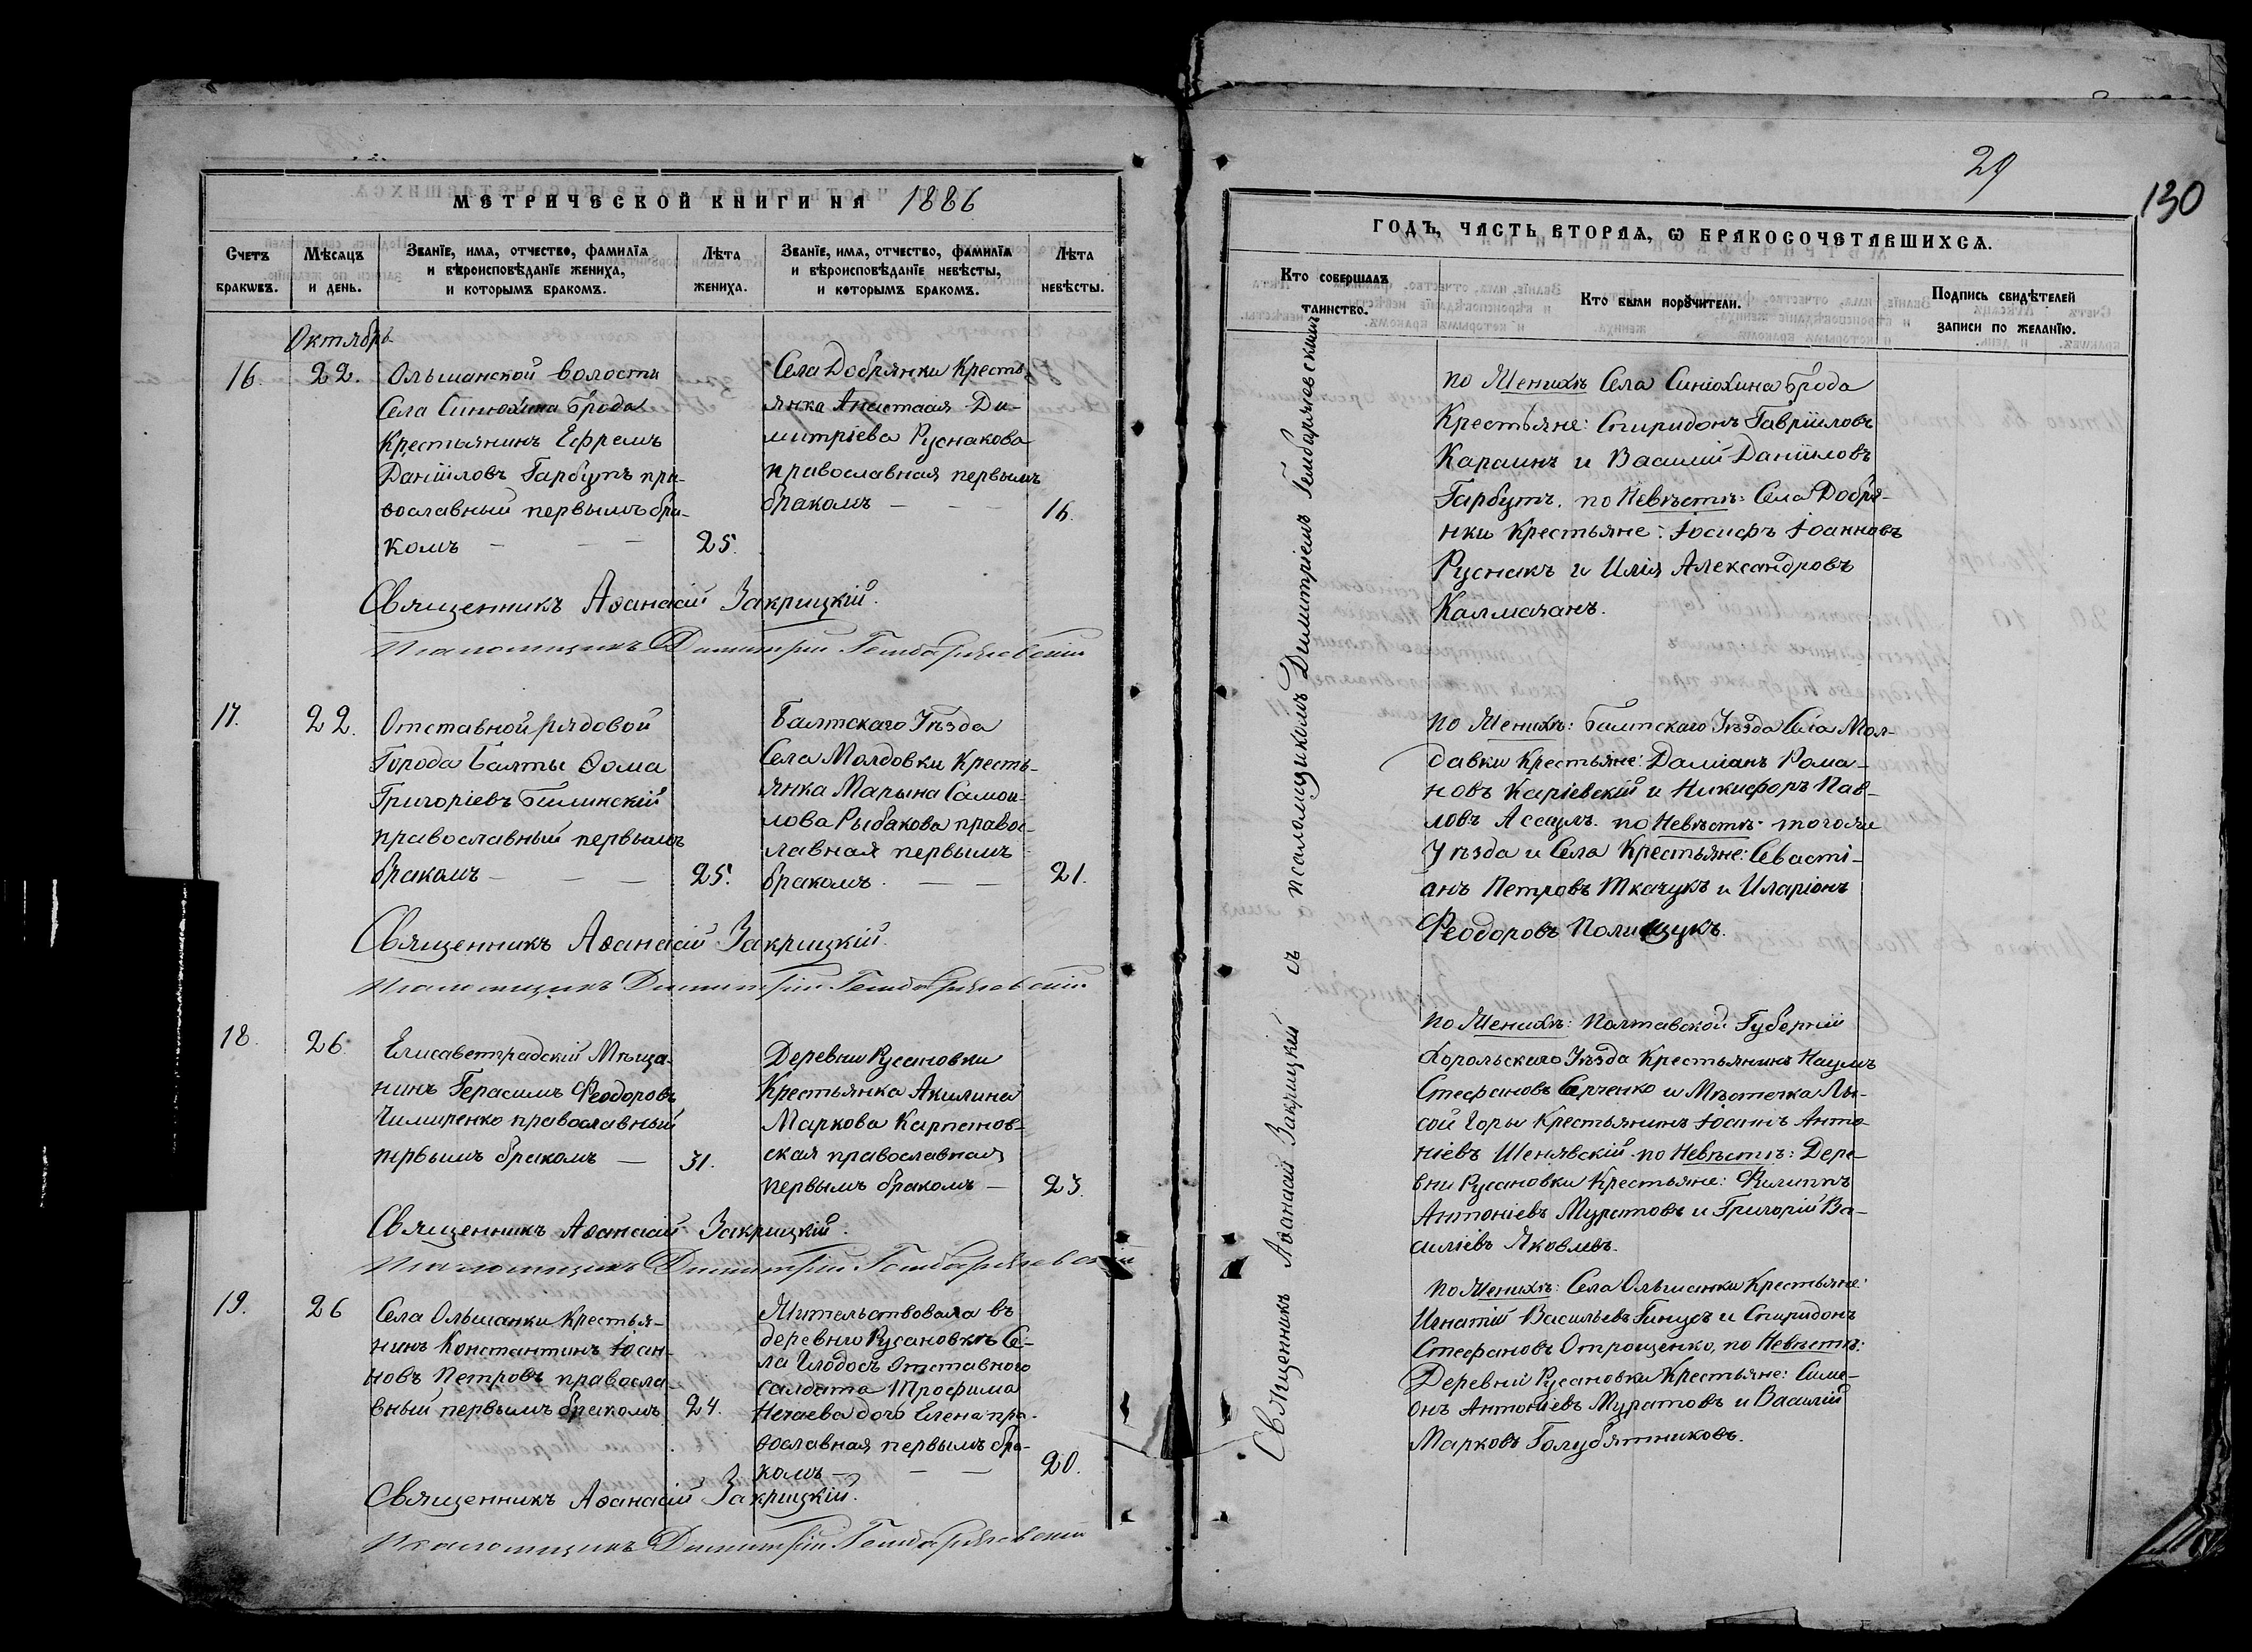 МЕТРИЧЕСКОЙ КНИГИ НА 1886
Счетъ браковъ.
Мѣсяцъ и день.
Званїе, имѧ, отчество, фамилїѧ
и вѣроисповѣданїе жениха,
и которымъ бракомъ.
Лѣта жениха.
Званїе, имѧ, отчество, фамилїѧ
и вѣроисповѣданїе невѣсты,
и которымъ бракомъ.
Лѣта невѣсты.
Октябрь
16. 22.
Ольшанской волости
Села Синюхина Брода
Крестьянинъ Ефремъ
Даніиловъ Гарбутъ пра-
вославный первымъ бра-
комъ — — — 25.
Села Добрянки Кресть-
янка Анастасія Ди-
митріева Руснакова
православная первымъ
бракомъ — — — 16.
Священникъ Аѳанасій Закрицкій.
Псаломщикъ Димитрій
17. 22.
Отставной рядовой
Города Балты Ѳома
Григоріевъ Билинскій
православный первымъ
бракомъ — — — 25.
Балтскаго Уѣзда
Села Молдовки Кресть-
янка Марына Самои-
лова Рыбакова правос-
лавная первымъ
бракомъ. — — 21.
Священникъ Аѳанасій Закрицкій.
Псаломщикъ Димитрій
18. 26.
Елисаветградскій Мѣща-
нинъ Герасимъ Феодоровъ
Чимиренко православный
первымъ бракомъ — 31.
Деревни Русановки
Крестьянка Акилина
Маркова Карпанов-
ская православная
первымъ бракомъ — 23.
Священникъ Аѳанасій Закрицкій.
Псаломщикъ Димитрій
19. 26
Села Ольшанки Крестья-
нинъ Константинъ Іоан-
новъ Петровъ правосла-
вный первымъ бракомъ 24.
Жительствовала въ
деревни Русановкѣ Се-
ла Глодосъ Отставного
солдата Трофима
Нечаева дочь Елена пра-
вославная первымъ бра-
комъ — — — 20.
Священникъ Аѳанасій Закрицкій.
Псаломщикъ Димитрій
29
130
ГОДЪ, ЧАСТЬ ВТОРАѦ, Ѡ БРАКОСОЧЕТАВШИХСѦ.
Кто совершалъ таинство.
Кто были порꙋчители.
Подпись свидѣтелей
записи по желанїю.
Священникъ Аѳанасій Закрицкій съ псаломщикомъ Димитріемъ
По Женихѣ Села Синюхина Брода
Крестьяне: Спиридонъ Гавріиловъ
Караинъ и Василій Даніиловъ
Гарбутъ. по Невѣстѣ: Села Добря-
нки Крестьяне: Іосифъ Іоанновъ
Руснакъ и Илія Александровъ
Калмачанъ.
По Женихѣ: Балтскаго Уѣзда Села Мол-
давки Крестьяне: Даміанъ Рома-
новъ Каріевскій и Никифоръ Пав-
ловъ по Невѣстѣ: тогоже
Уѣзда и Села Крестьяне: Севасті-
анъ Петровъ Ткачукъ и Иларіонъ
Феодоровъ Полищукъ.
По Женихѣ: Полтавской Губерніи
Хорольскаго Уѣзда Крестьянинъ Наумъ
Стефановъ Серченко и Мѣстечка Лы-
сой Горы Крестьянинъ Іоаннъ Анто-
ніевъ Шенявскій по Невѣстѣ: Дере-
вни Русановки Крестьяне: Филиппъ
Антоніевъ Муратовъ и Григорій Ва-
силіевъ Яковлевъ.
По Женихѣ: Села Ольшанки Крестьяне:
Игнатій Васильевъ и Спиридонъ
Стефановъ Отрощенко, по Невѣстѣ:
Деревни Русановки Крестьяне: Симе-
онъ Антоніевъ Муратовъ и Василій
Марковъ Голубятниковъ.